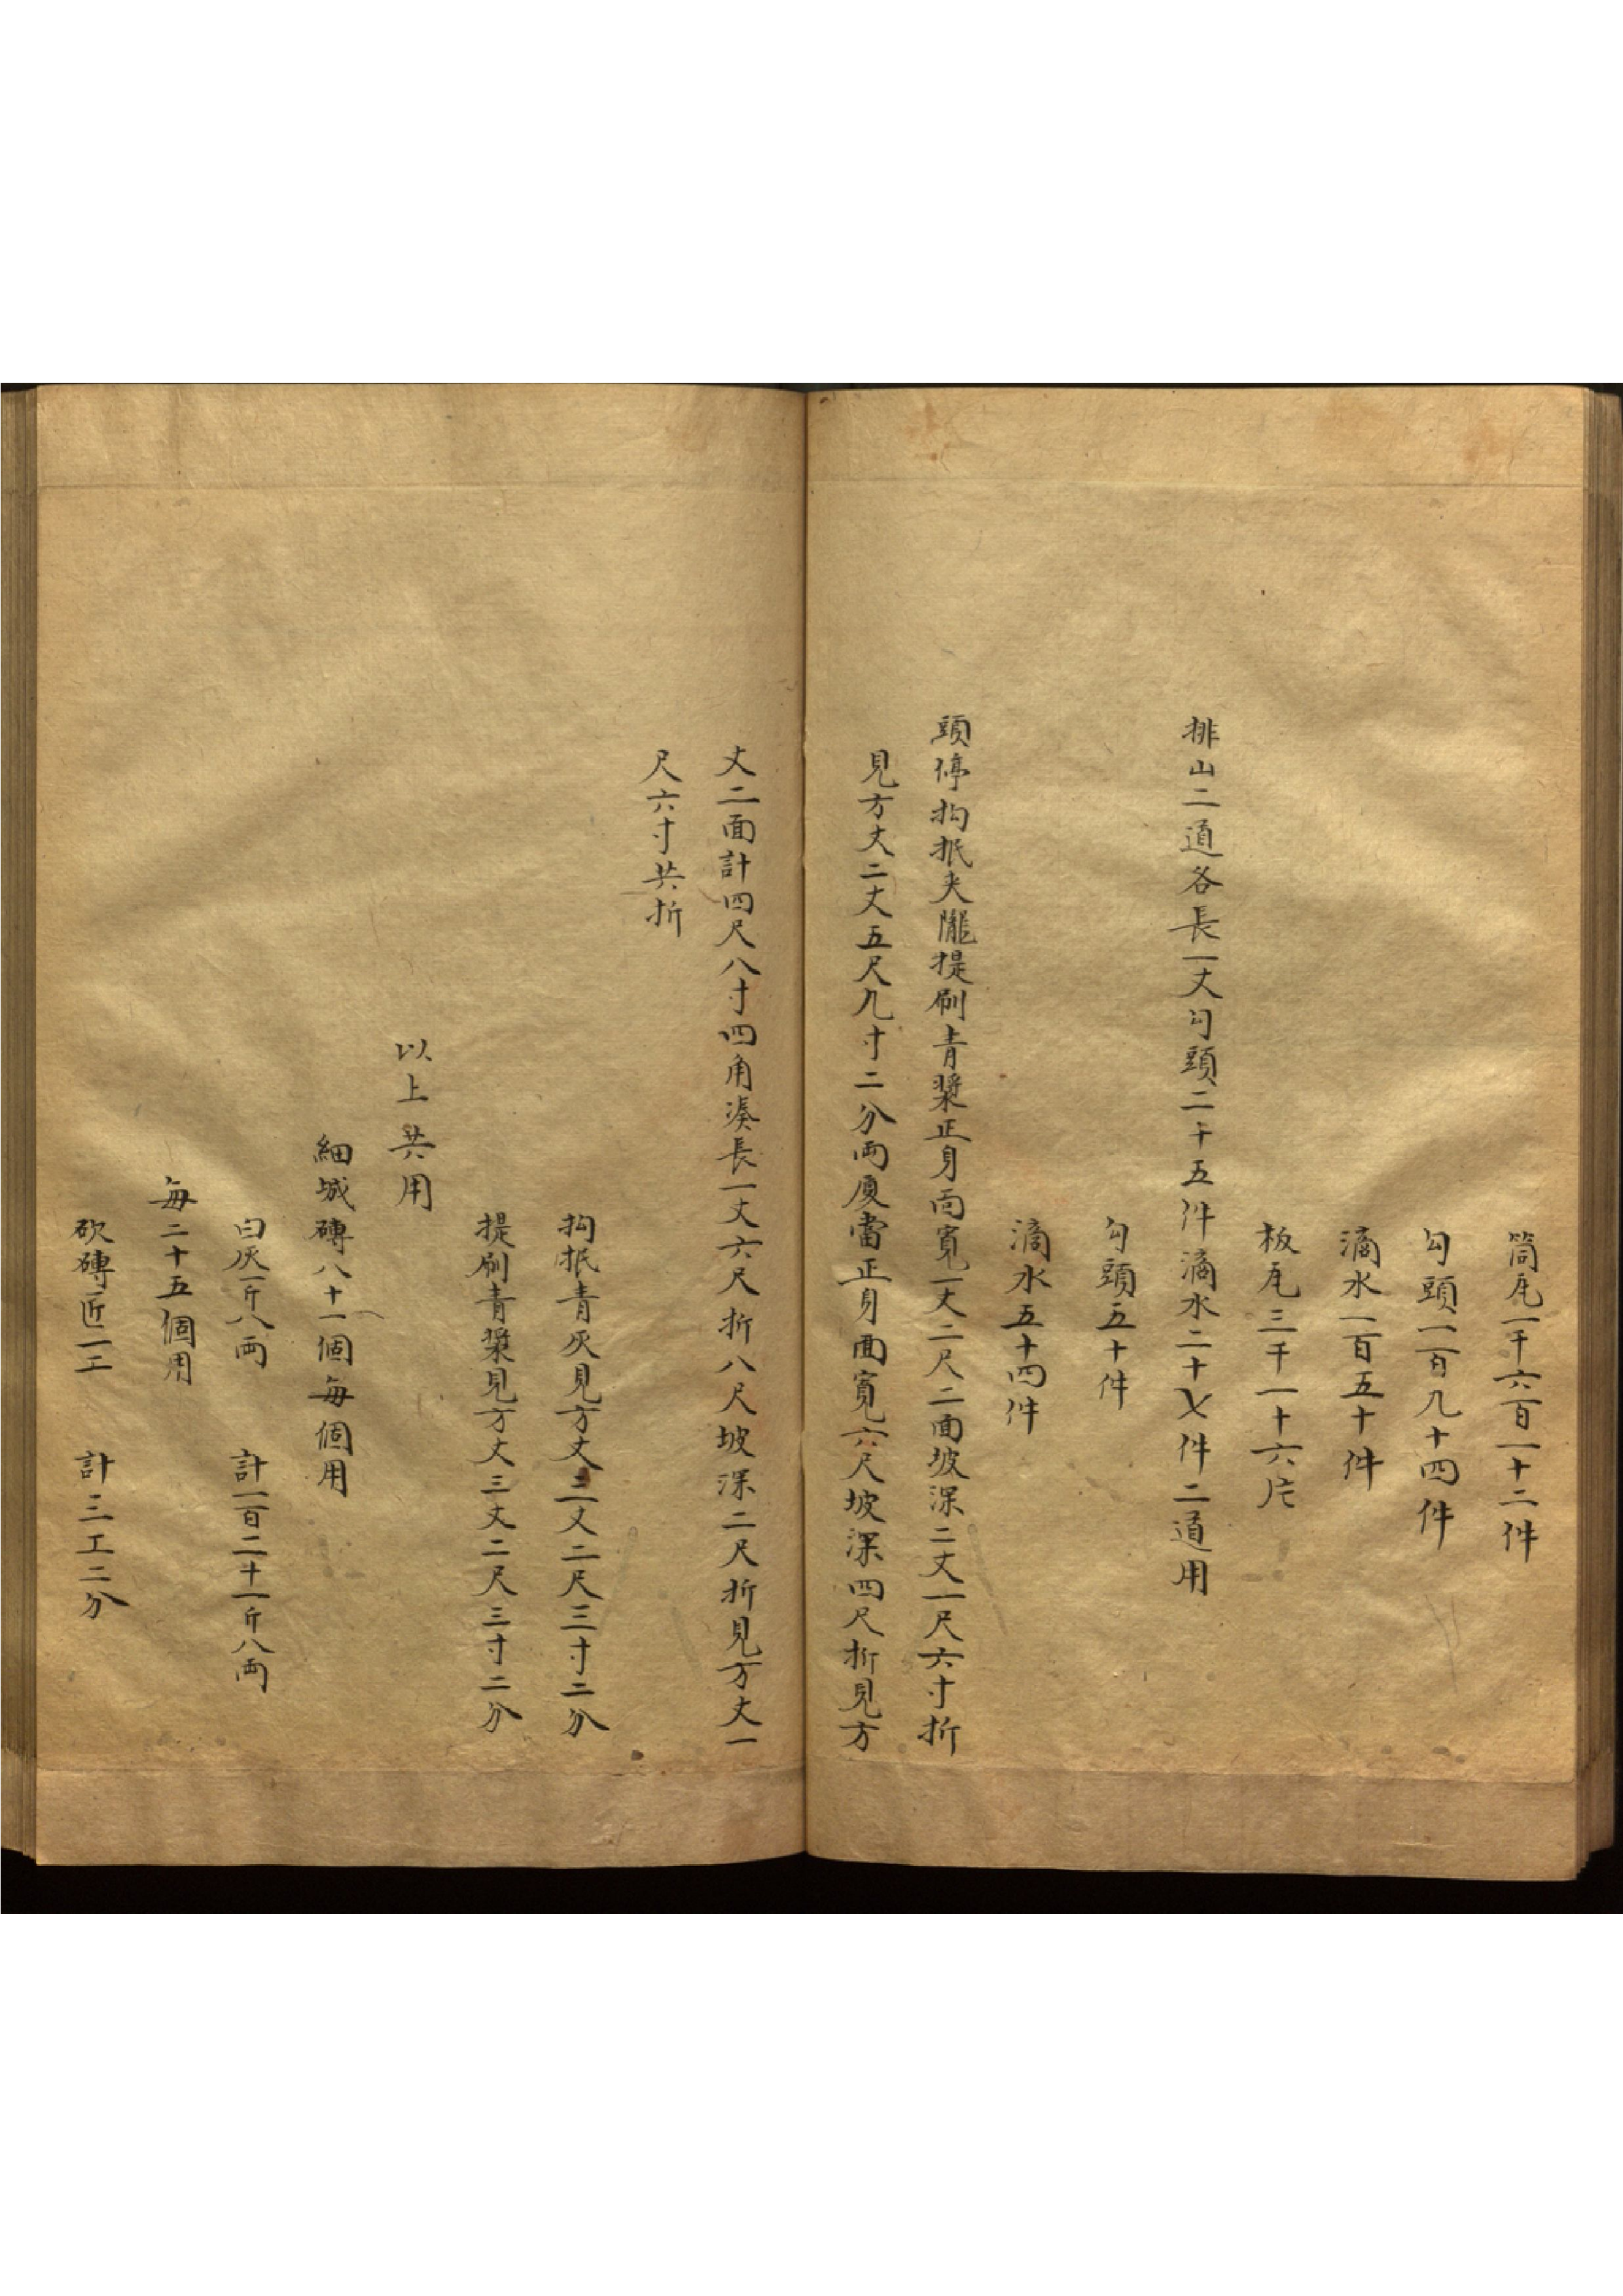 筒瓦一千六百一十二件
勾頭一百九十四件
滴水一百五十件
板瓦三千一十六片
排山二道各長一丈勾頭二十五件滴水二十七件二道用
勾頭五十件
滴水五十四件
頭停抅抿夾隴提刷青漿正身面寬一丈二尺二面坡深二丈一尺六寸折
見方丈二丈五尺九寸二分兩廈當正身面寬六尺坡深四尺折見方
丈二面計四尺八寸四角湊長一丈六尺折八尺坡深二尺折見方丈一
尺六寸共折
抅抿青灰見方丈三丈二尺三寸二分
提刷青漿見方丈三丈二尺三寸二分
以上共用
細城磚八十一個每個用
白灰一斤八兩 計一百二十一斤八兩
每二十五個用
砍磚匠一工 計三工二分